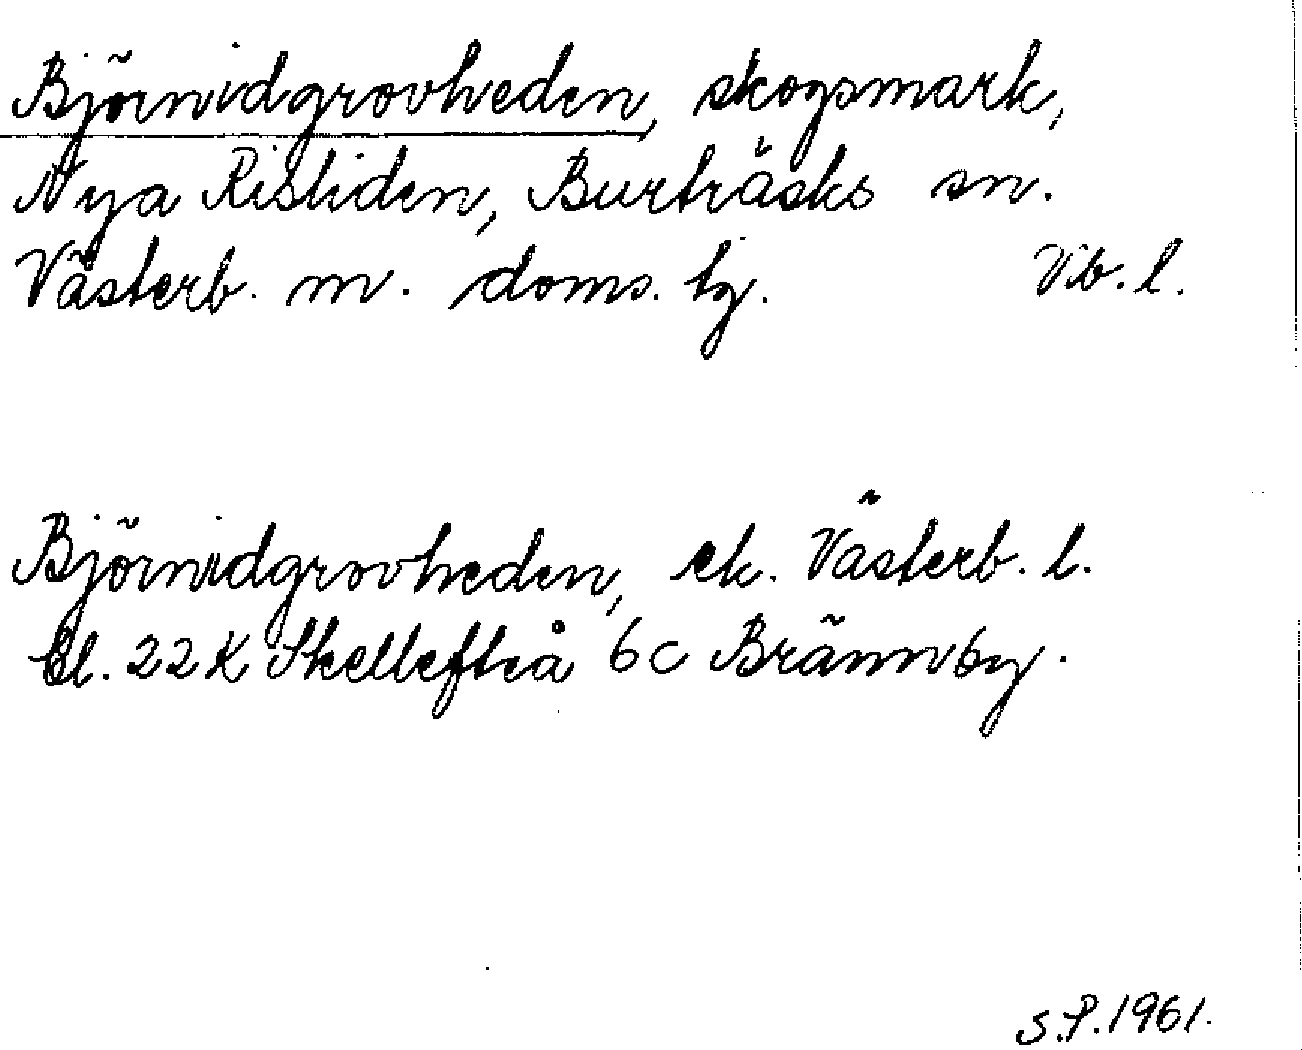 Björnidgrovheden, skogsmark,
Nya Ristiden, Burträsks sn.
Västerb. m. doms. tg. Vib. l.
Björnidgrovheden, ek. Västerb. l.
Bl. 22 K Skellefteå 6c Brännby.
S.P. 1961.